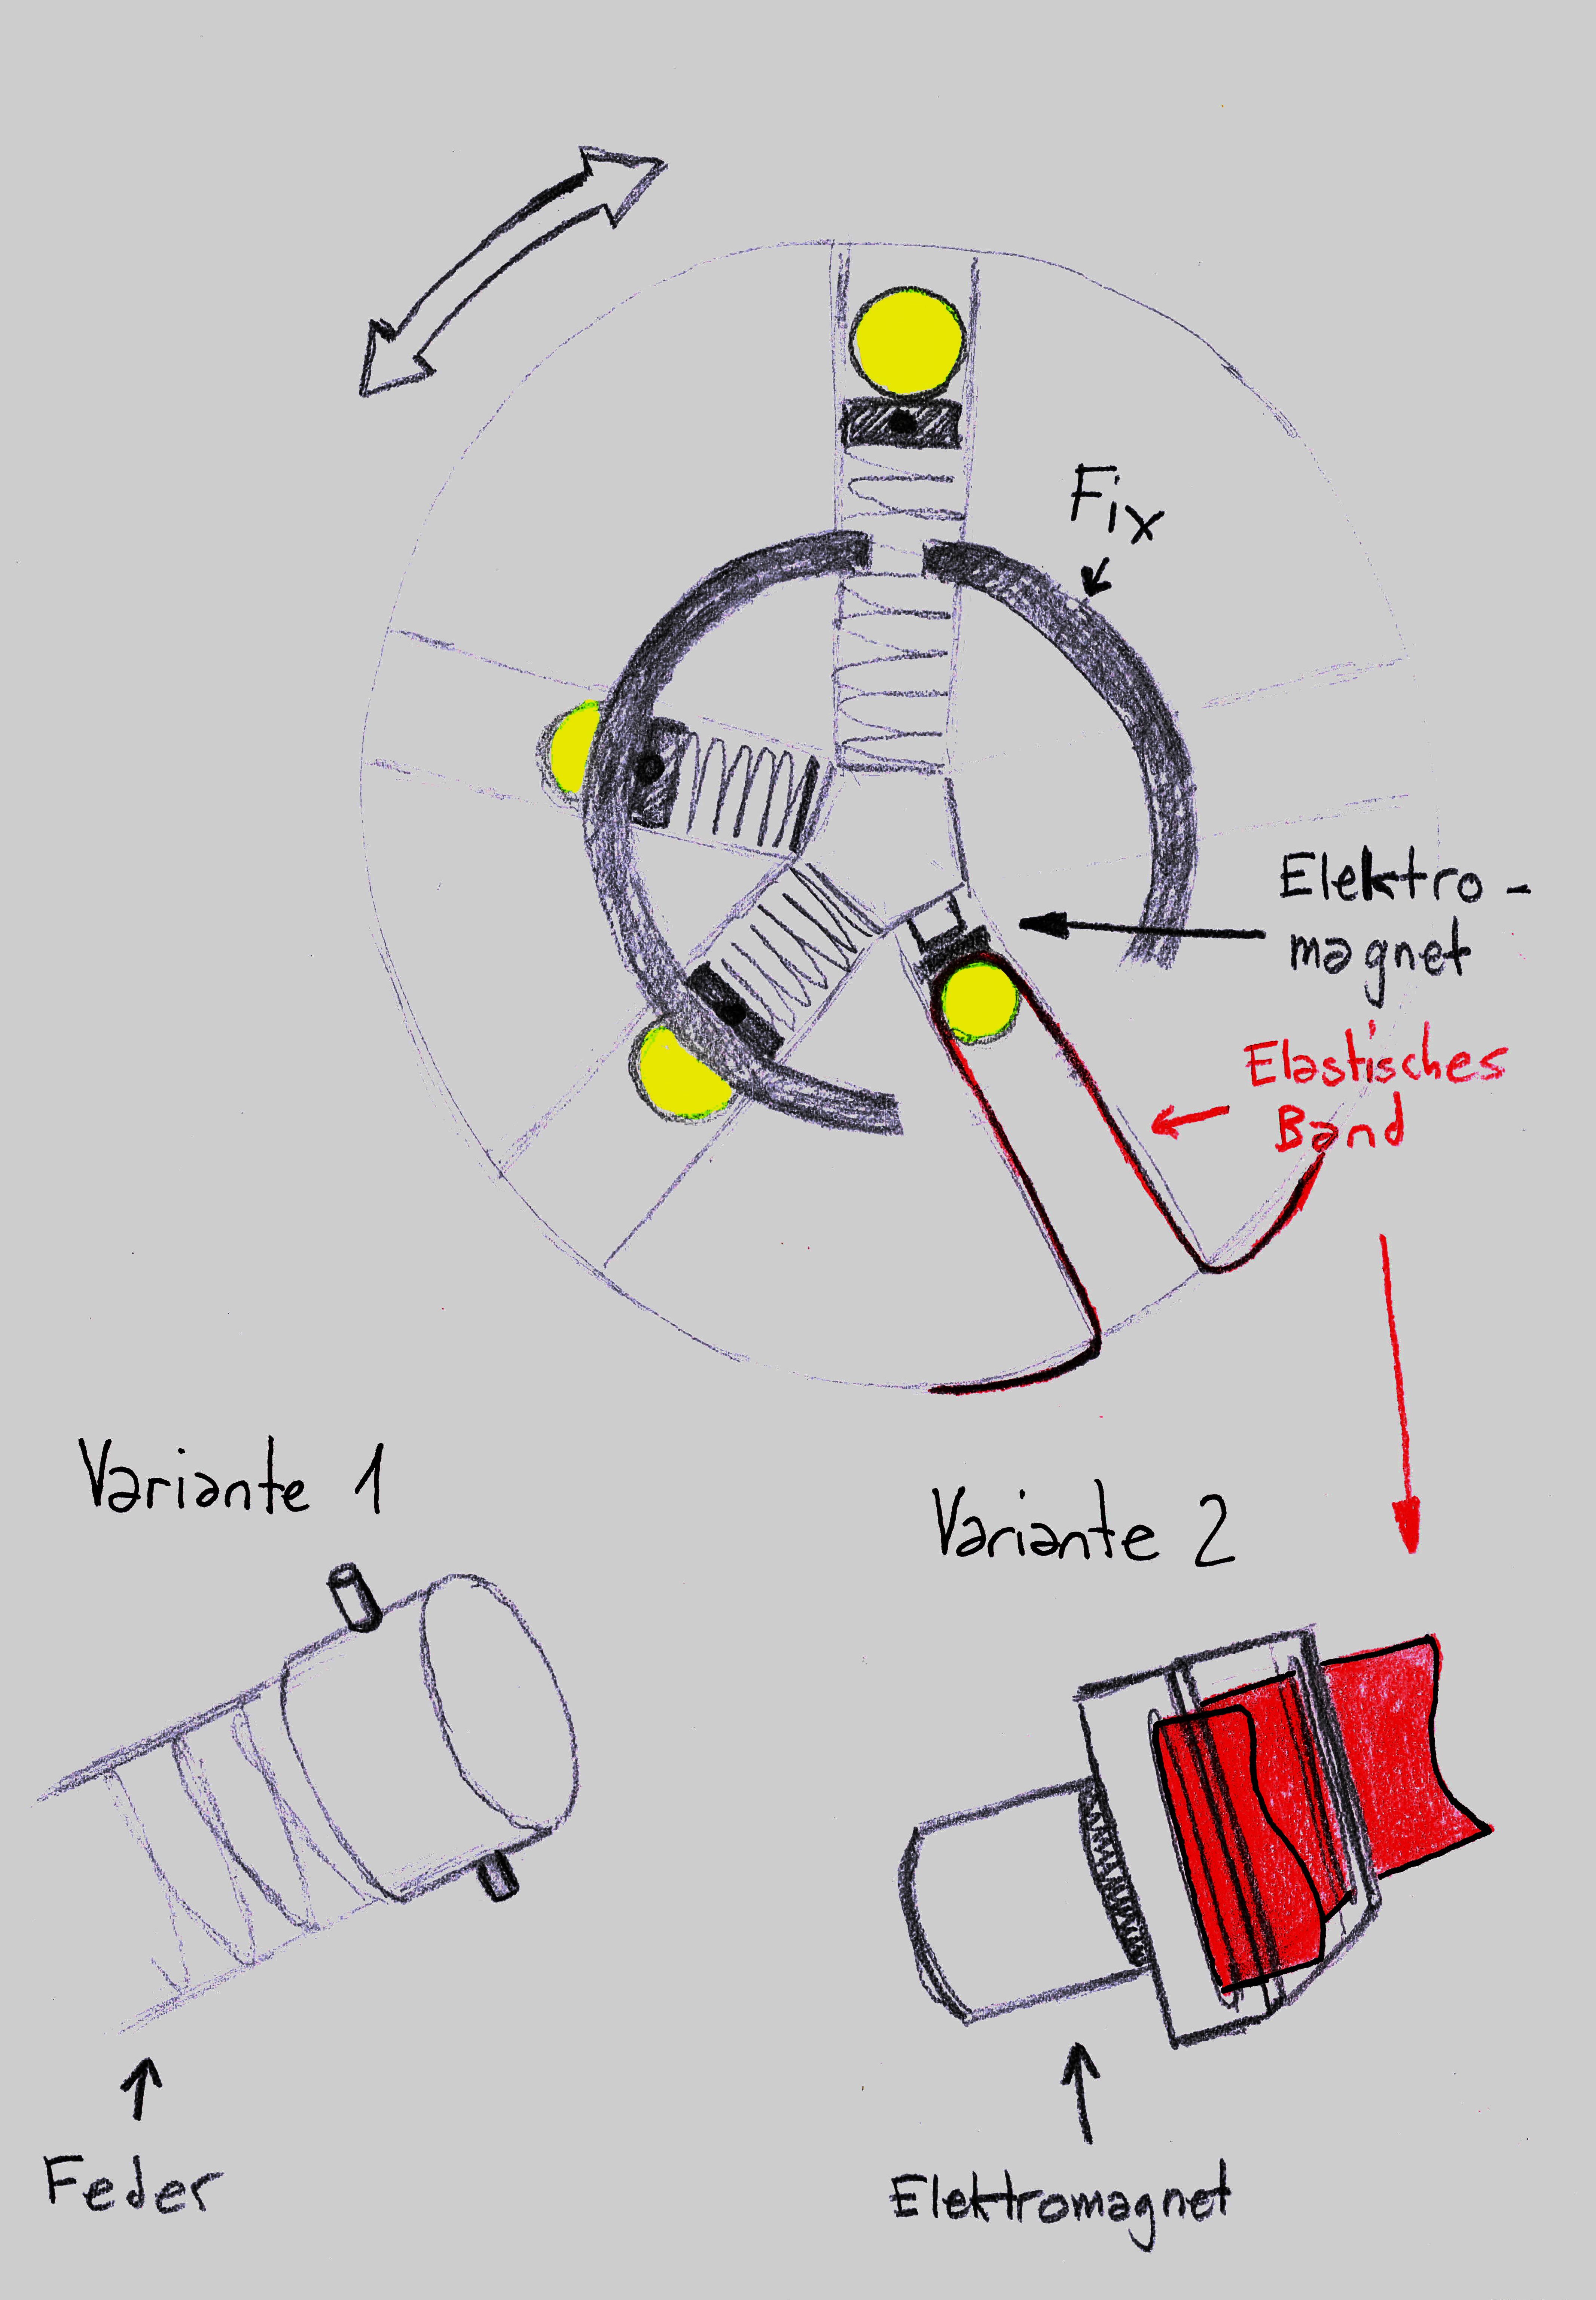 Fix
Elektro-
magnet
Elastisches
Band
Variante 1
Variante 2
Feder
Elektromagnet